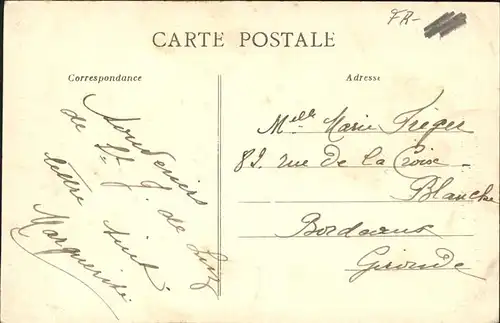 FR-
CARTE POSTALE
Correspondance
Adresse
Souvenirs
de St J. de Luz
lettre suit
Marguerite
Melle Marie Tréger
82. rue de la Croix
Blanche
Bordeaux
Gironde